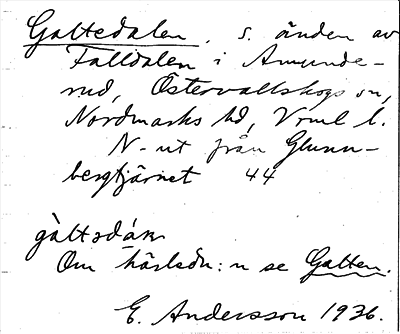 Galtedalen, s. änden av
Falldalen i Amunde-
rud, Östervallskogs sn,
Nordmarks hd, Vrml l.
N-ut från Glunn-
bergtjärnet 44
gàltədán
Om härledn:n se Galten.
E. Andersson 1936.